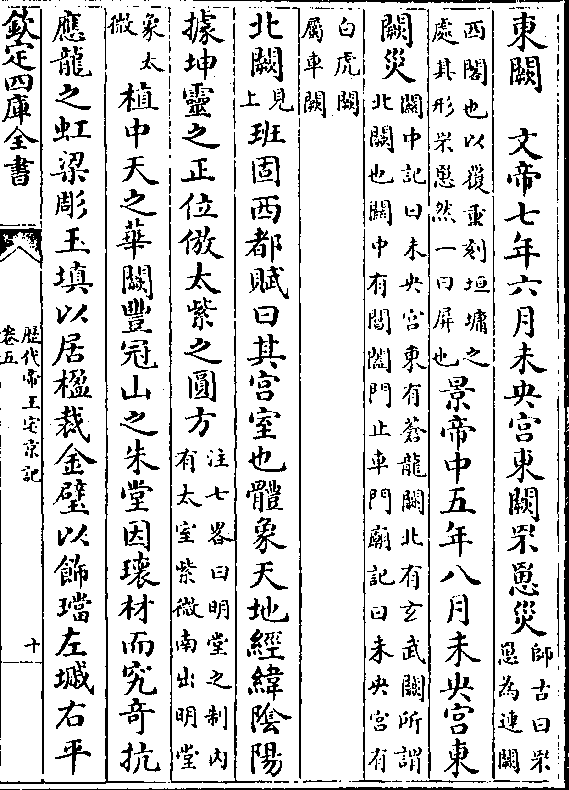 東闕　文帝七年六月未央宫東闕罘罳災師古曰罘
罳為連闕
西閣也以覆重刻垣墉之
處其形罘罳然一曰屏也景帝中五年八月未央宫東
闕災關中記曰未央宫東有蒼龍闕北有玄武闕所謂
北闕也關中有閶闔門止車門廟記曰未央宫有
白虎闕
屬車闕
北闕見
上班固西都賦曰其宫室也體象天地經緯陰陽
據坤靈之正位倣太紫之圓方注七畧曰明堂之制内
有太室紫微南出明堂
象太
微植中天之華闕豐冠山之朱堂因瓌材而究奇抗
應龍之虹梁彫玉填以居楹裁金璧以飾璫左墄右平
欽定四庫全書
歴代帝王宅京記
卷五
十